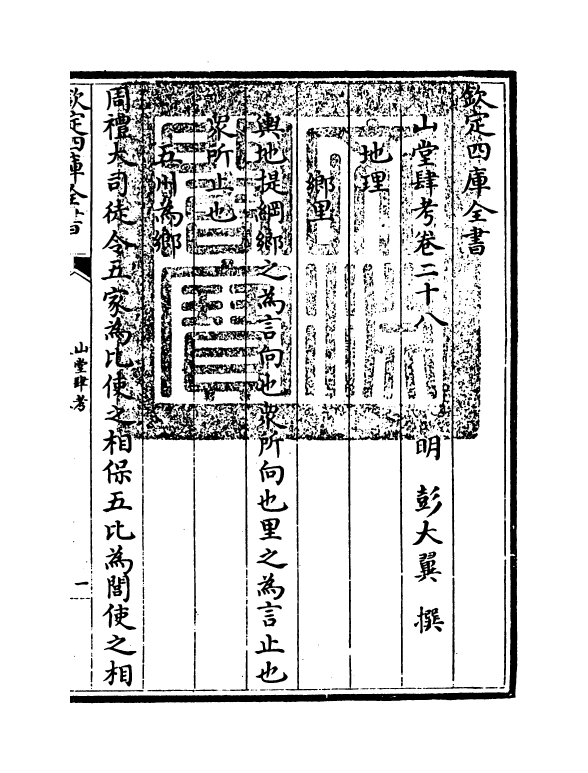 欽定四庫全書
山堂肆考卷二十八
明 彭大翼 撰
地理
鄉里
輿地提綱鄉之為言向也衆所向也里之為言止也
衆所止也
五州為鄉
周禮大司徒令五家為比使之相保五比為閭使之相
欽定四庫全書
山堂肆考
一